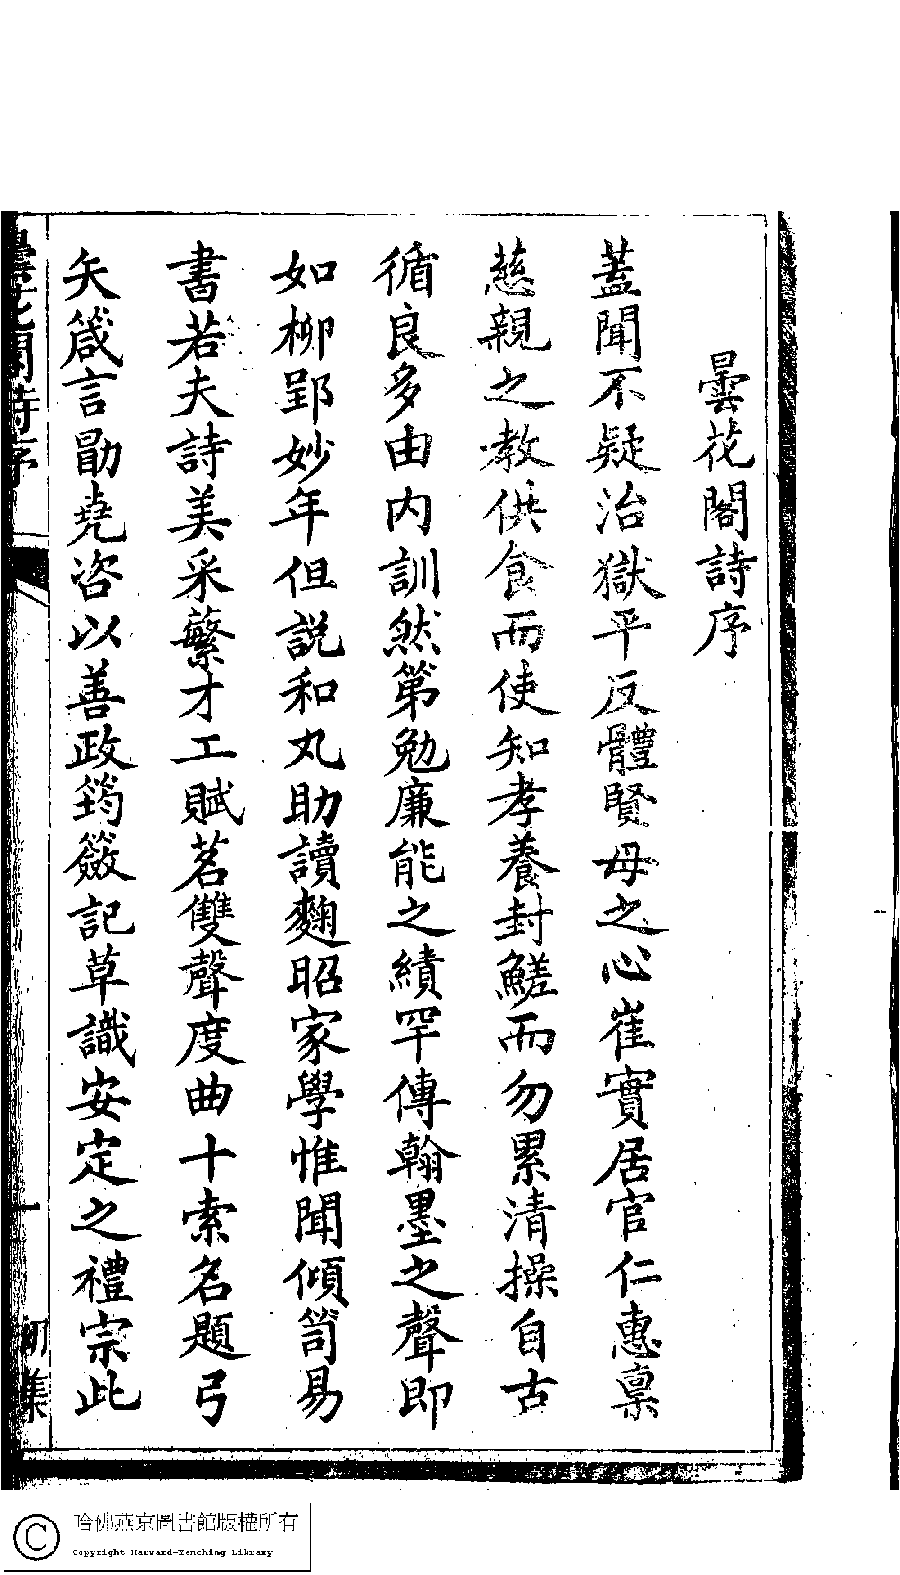 曇花閣詩序
蓋聞不疑治獄平反體賢母之心崔實居官仁惠稟
慈親之教供食而使知孝養封鱃而勿累清操自古
循良多由內訓然第勉廉能之績罕傳翰墨之聲即
如柳郢妙年但説和丸助讀麴昭家學惟聞傾笥易
書若夫詩美采蘩才工賦茗雙聲度曲十索名題弓
矢箴言勖堯咨以善政筠簽記草識安定之禮宗此
曇花閣詩序
一
初集
哈佛燕京圖書館版權所有
Copyright Harvard-Yenching Library